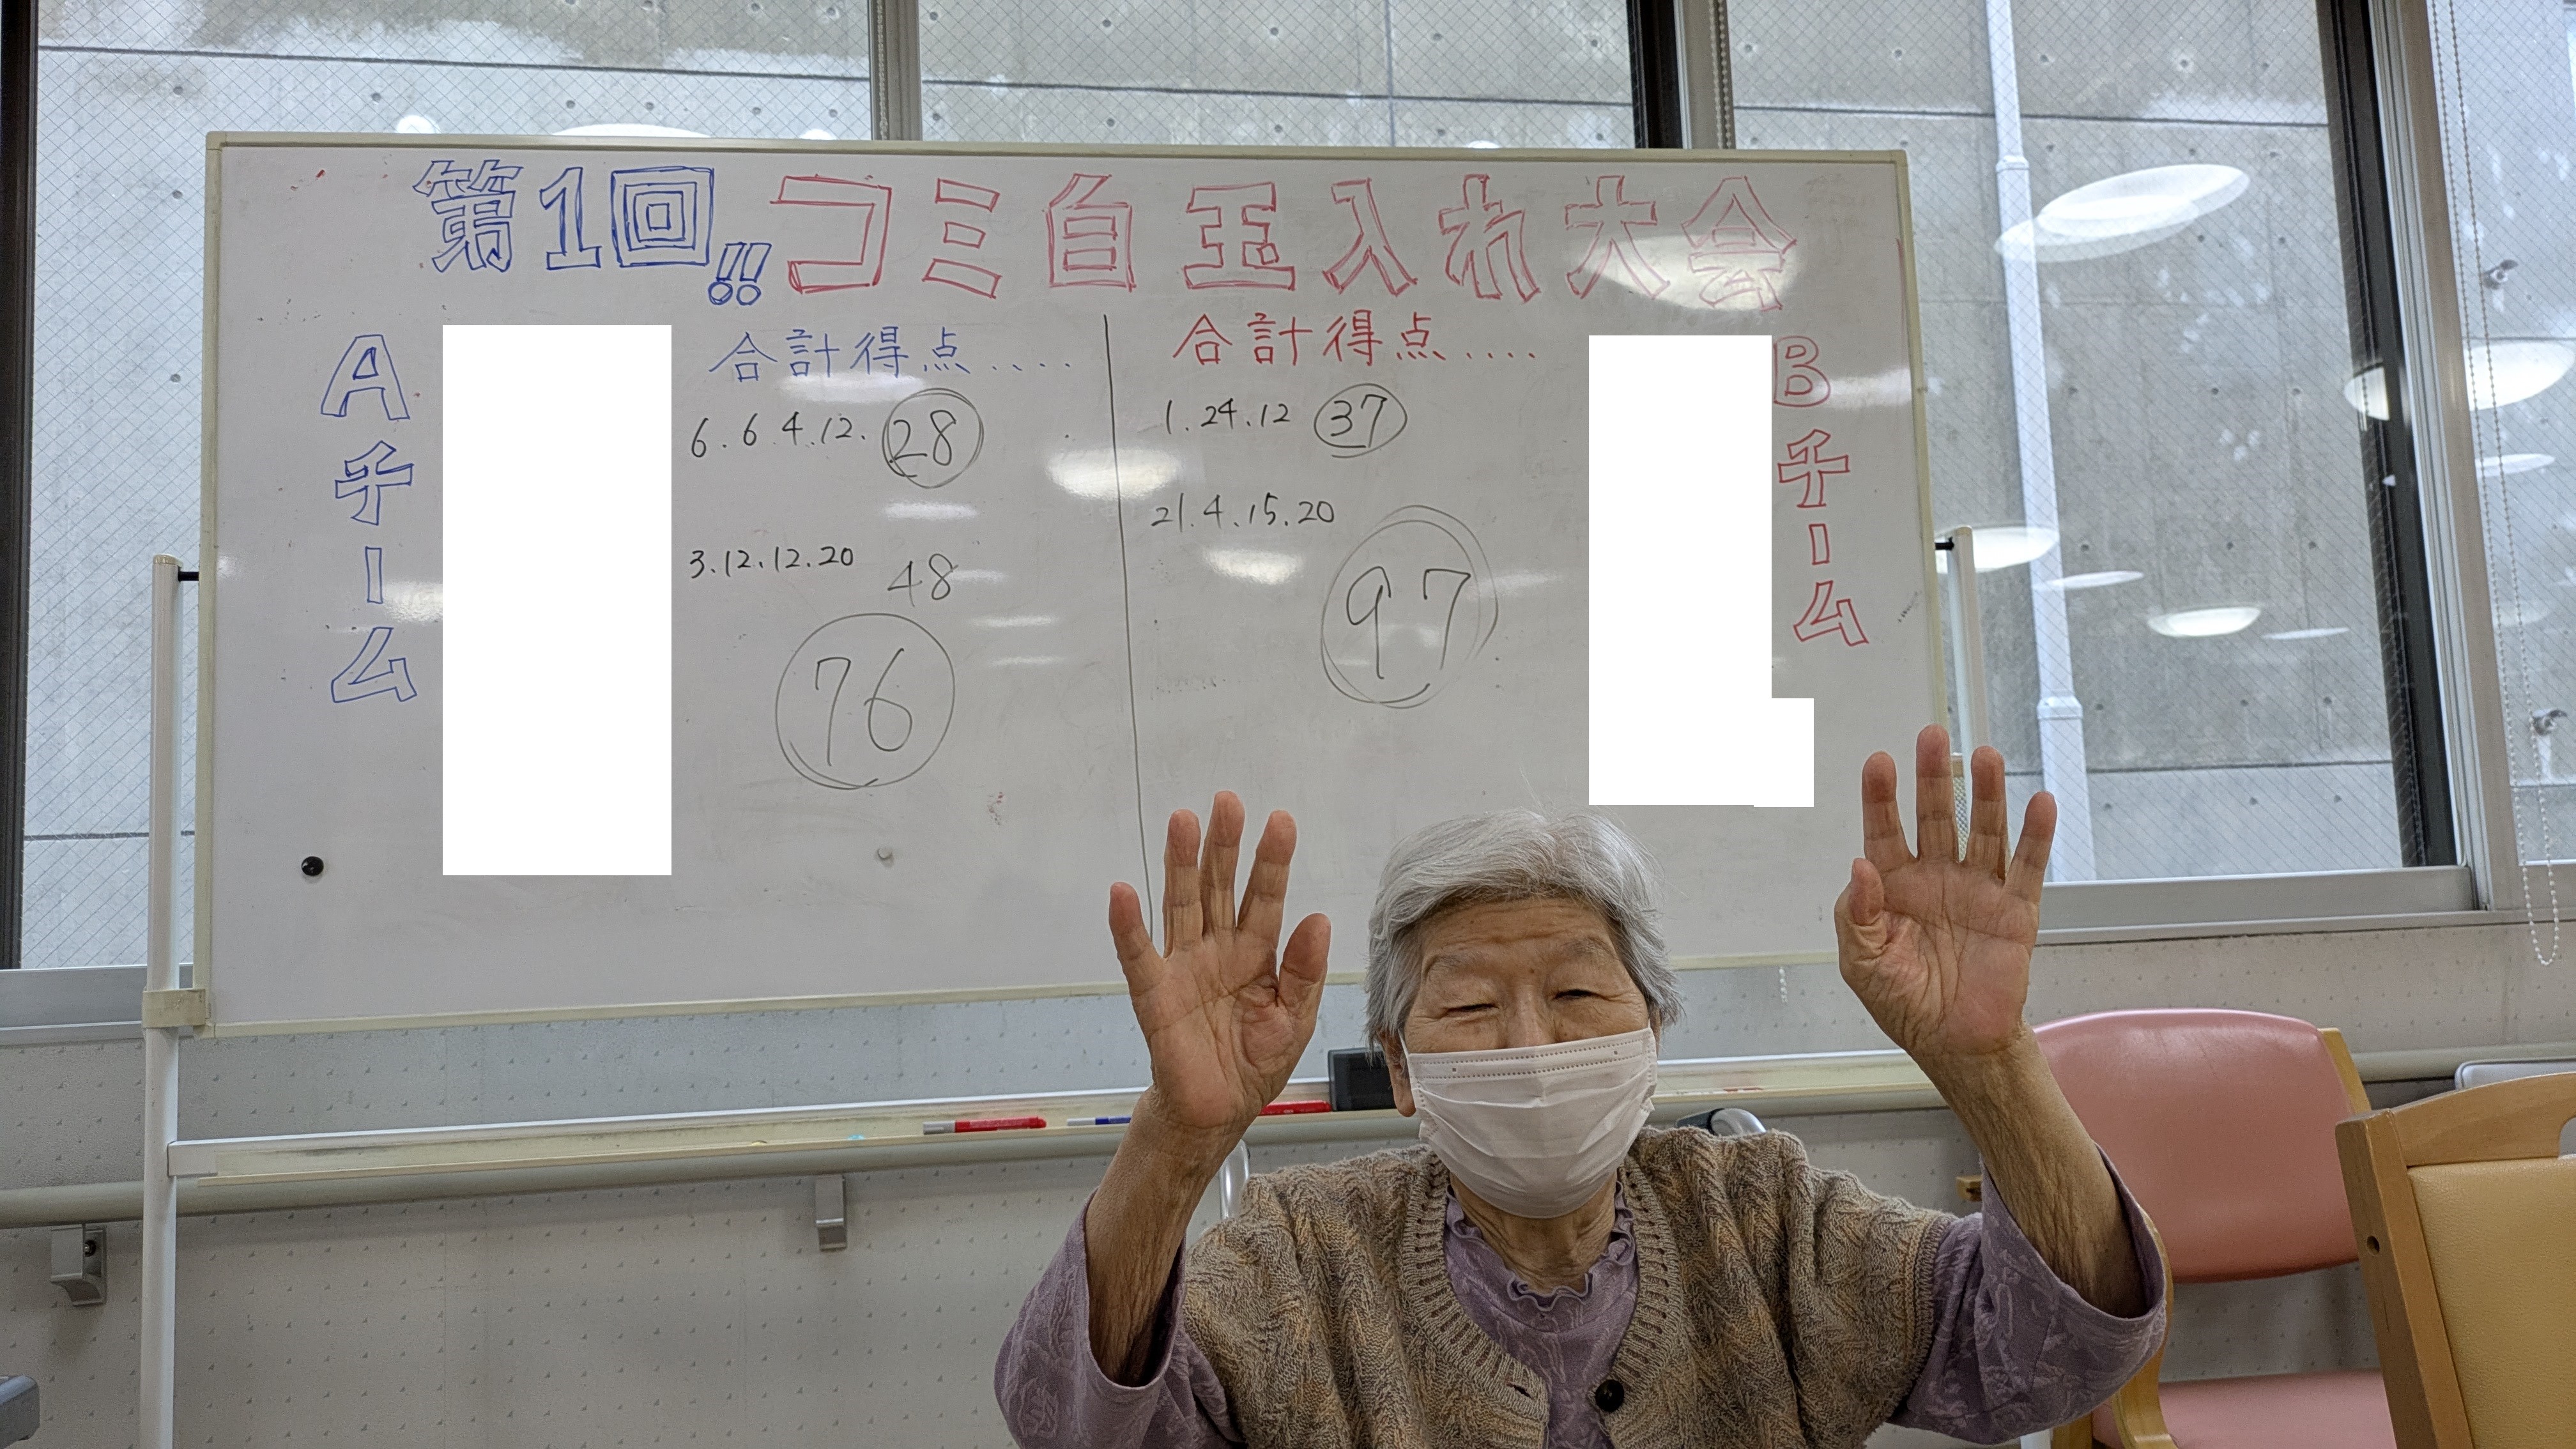 第1回!!コミ白玉入れ大会
Aチーム
合計得点....
6.6.4.12.㉘
3.12.12.20 48
76
合計得点....
1.24.12 ㊲
21.4.15.20
97
Bチーム